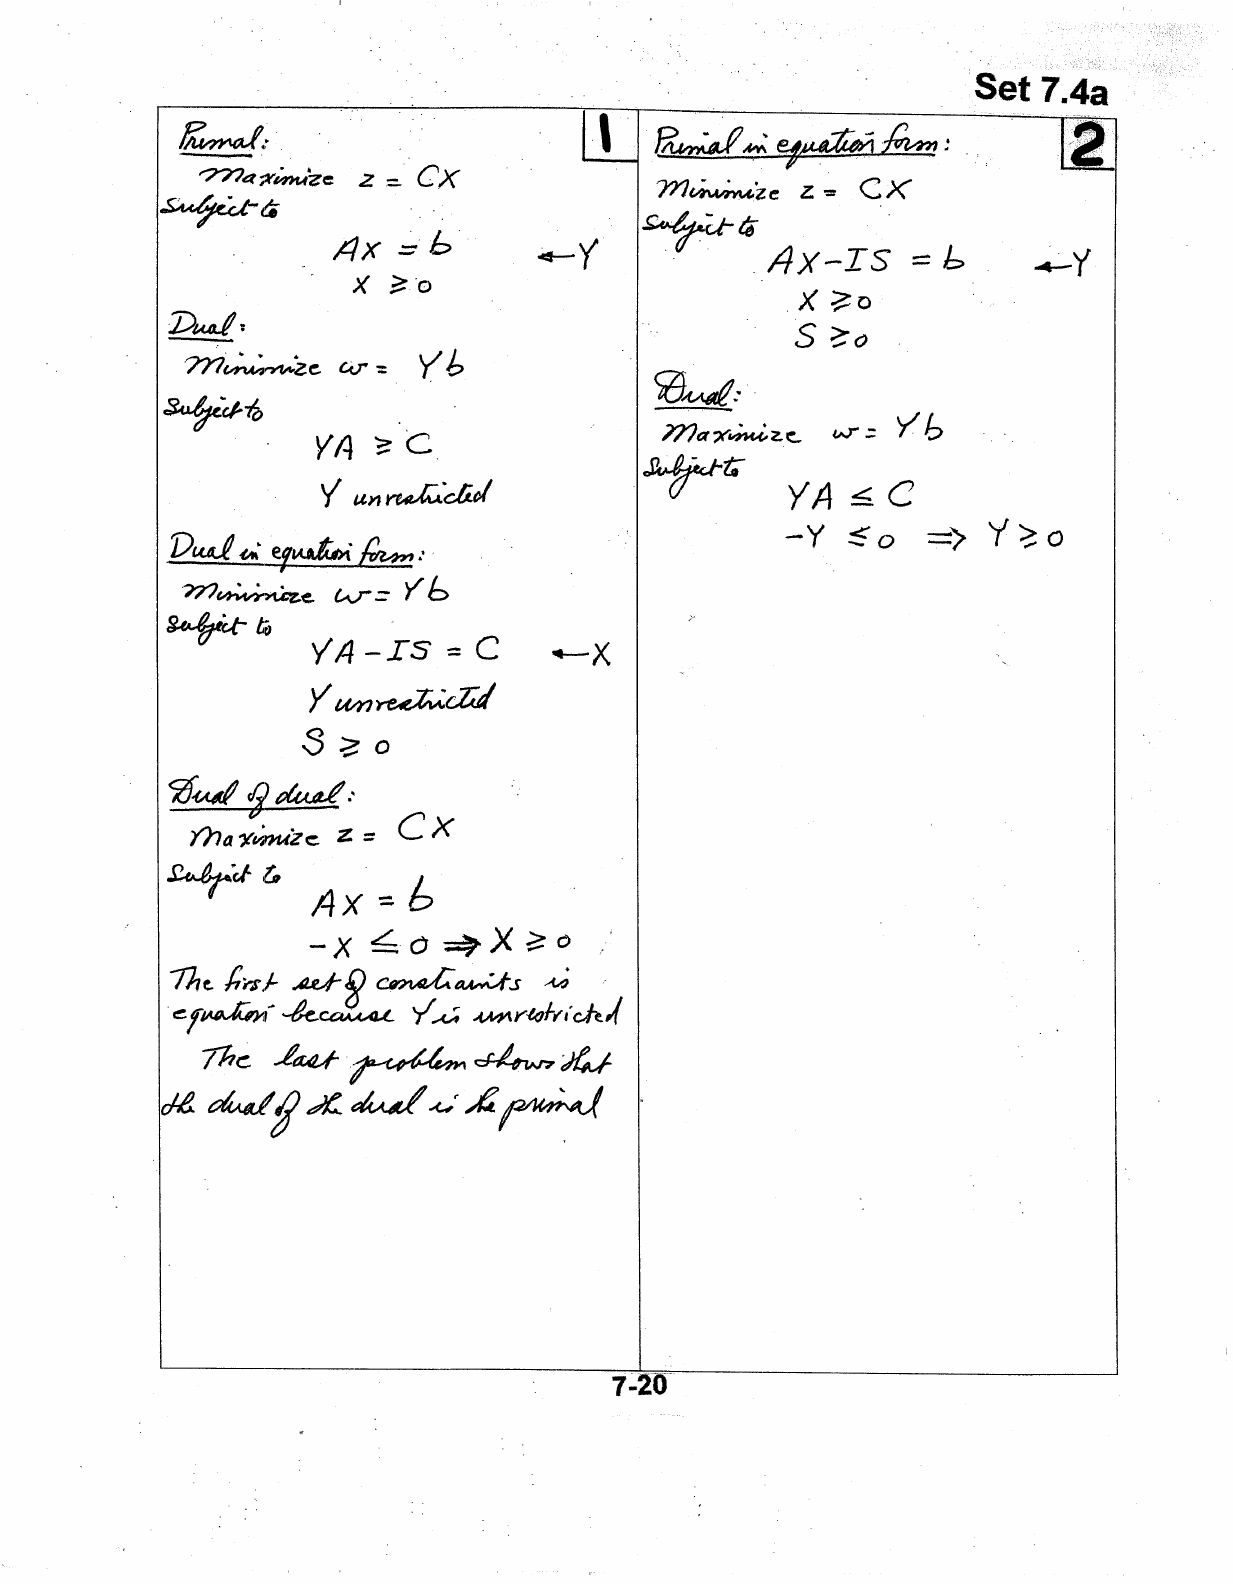 Set 7.4a
1
Primal:
Maximize z = CX
Subject to
AX = b ←Y
X ≥ 0
Dual:
Minimize w = Yb
Subject to
YA ≥ C
Y unrestricted
Dual in equation form:
Minimize w = Yb
Subject to
YA - IS = C ←X
Y unrestricted
S ≥ 0
Dual of dual:
Maximize z = CX
Subject to
AX = b
-X ≤ 0 ⇒ X ≥ 0
The first set of constraints is
equation because Y is unrestricted
The last problem shows that
the dual of the dual is the primal
2
Primal in equation form:
Minimize z = CX
Subject to
AX - IS = b ←Y
X ≥ 0
S ≥ 0
Dual:
Maximize w = Yb
Subject to
YA ≤ C
-Y ≤ 0 ⇒ Y ≥ 0
7-20